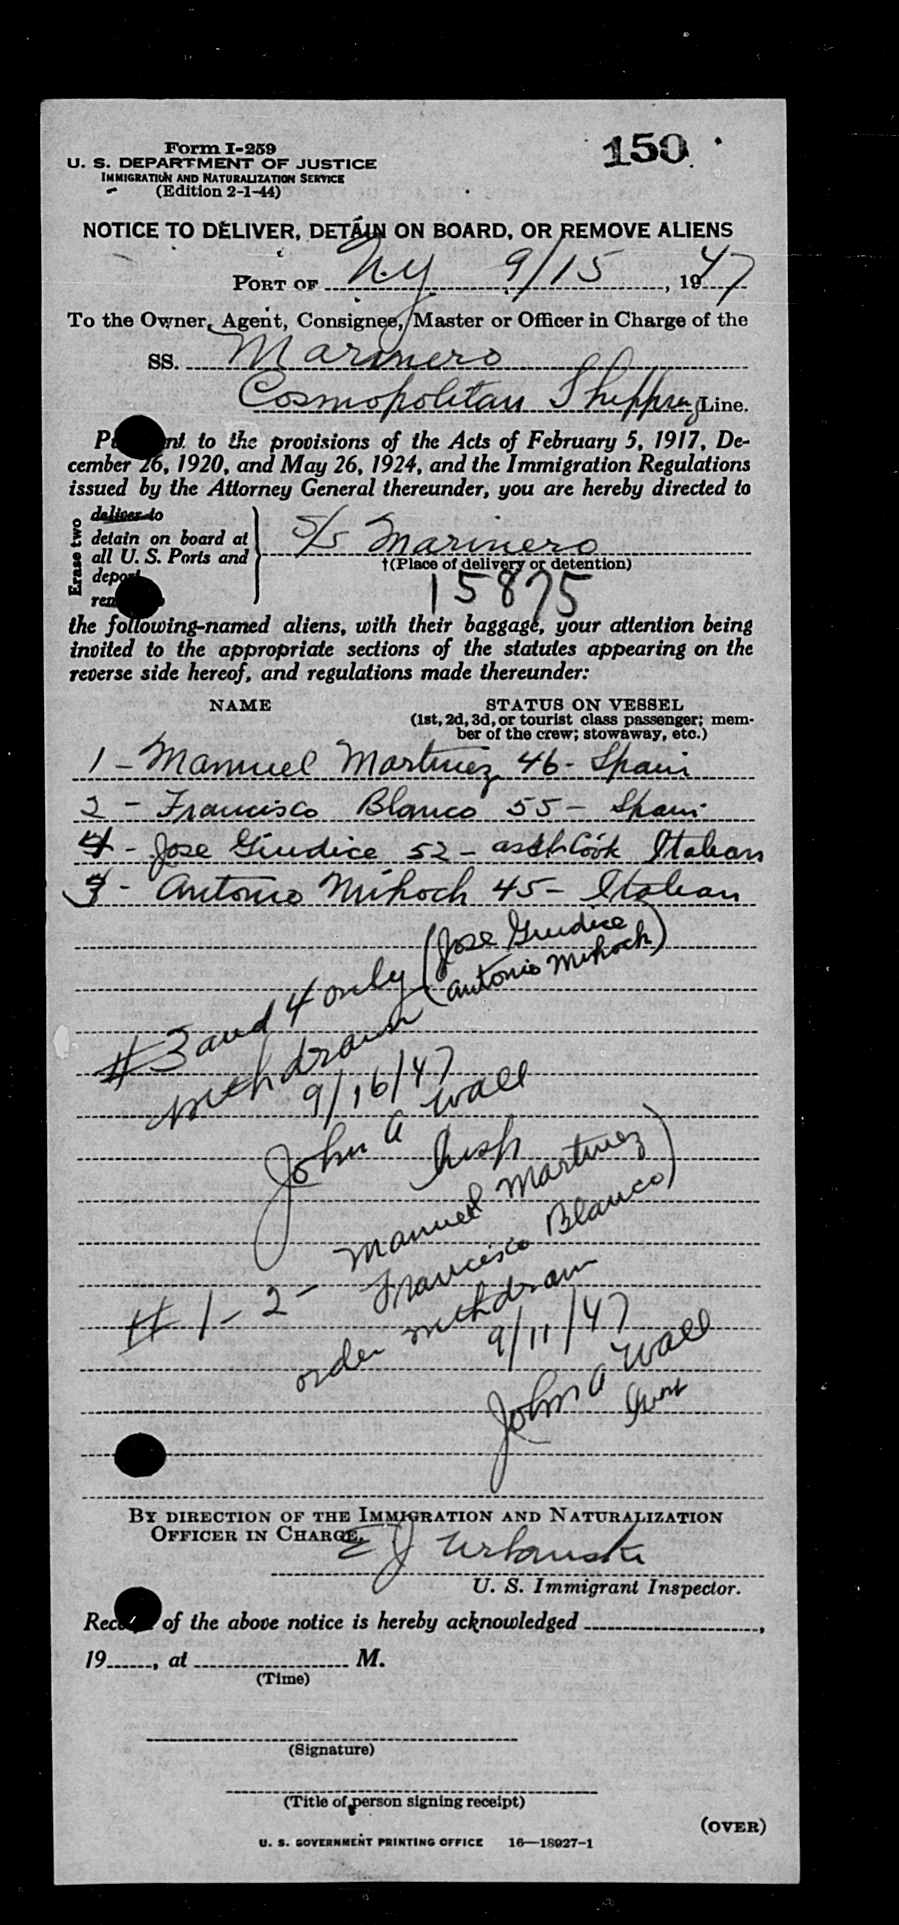 Form I-259
150
U. S. DEPARTMENT OF JUSTICE
IMMIGRATION AND NATURALIZATION SERVICE
(Edition 2-1-44)
NOTICE TO DELIVER, DETAIN ON BOARD, OR REMOVE ALIENS
PORT OF N.Y 9/15, 1947
To the Owner, Agent, Consignee, Master or Officer in Charge of the
SS. Marinero
Cosmopolitan Shipping Line.
nt to the provisions of the Acts of February 5, 1917, De-
cember 26, 1920, and May 26, 1924, and the Immigration Regulations
issued by the Attorney General thereunder, you are hereby directed to
Erase two
deliver to
detain on board at
all U. S. Ports and
deport
S/S Marinero
†(Place of delivery or detention)
15875
the following-named aliens, with their baggage, your attention being
invited to the appropriate sections of the statutes appearing on the
reverse side hereof, and regulations made thereunder:
NAME STATUS ON VESSEL
(1st, 2d, 3d, or tourist class passenger; mem-
ber of the crew; stowaway, etc.)
1 - Manuel Martinez 46 - Spain
2 - Francisco Blanco 55 - Spain
4 - Jose Giudice 52 - asst Cook Italian
3 - Antonio Mihoch 45 - Italian
#3 and 4 only (Jose Giudice
withdrawn (Antonio Mihoch)
9/16/47
John A Wall
Insp
# 1 - 2 - Manuel Martinez)
Francisco Blanco)
order withdrawn
9/11/47
John A Wall
BY DIRECTION OF THE IMMIGRATION AND NATURALIZATION
OFFICER IN CHARGE,
E J Urbanski
U. S. Immigrant Inspector.
Receipt of the above notice is hereby acknowledged ,
19 , at M.
(Time)
(Signature)
(Title of person signing receipt)
(OVER)
U. S. GOVERNMENT PRINTING OFFICE 16—18927-1